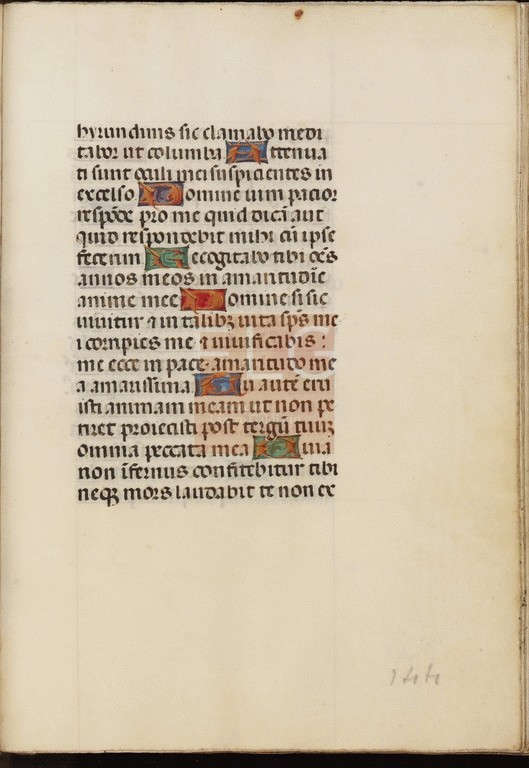 hyrundinis sic clamabo medi
tabor ut columba Attenua
ti sunt oculi mei suspicientes in
excelso Domine uim pacior
respōde pro me quid dicā aut
quid respondebit mihi cū ipse
fecerim Recogitabo tibi oēs
annos meos in amaritudīe
anime mee Domine si sic
uiuitur ⁊ in talibꝫ uita sp̄s me
i corripies me ⁊ uiuificabis :
me ecce in pace amaritudo me
a amarissima Tu autē eru
isti animam meam ut non pe
riret proiecisti post tergū tuūꝫ
omnia peccata mea Quia
non īfernus confitebitur tibi
neqꝫ mors laudabit te non ex